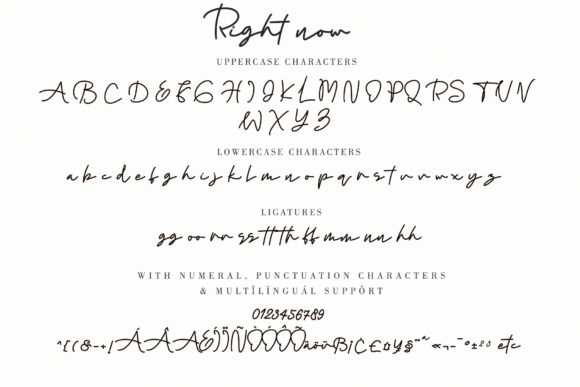 Right now
UPPERCASE CHARACTERS
A B C D E F G H I J K L M N O P Q R S T U V
W X Y Z
LOWERCASE CHARACTERS
a b c d e f g h i j k l m n o p q r s t u v w x y z
LIGATURES
gg oo rr ss tt th ff mm nn hh
WITH NUMERAL, PUNCTUATION CHARACTERS
& MULTÎLĪNGUÁL SUPPÔRT
0123456789
etc